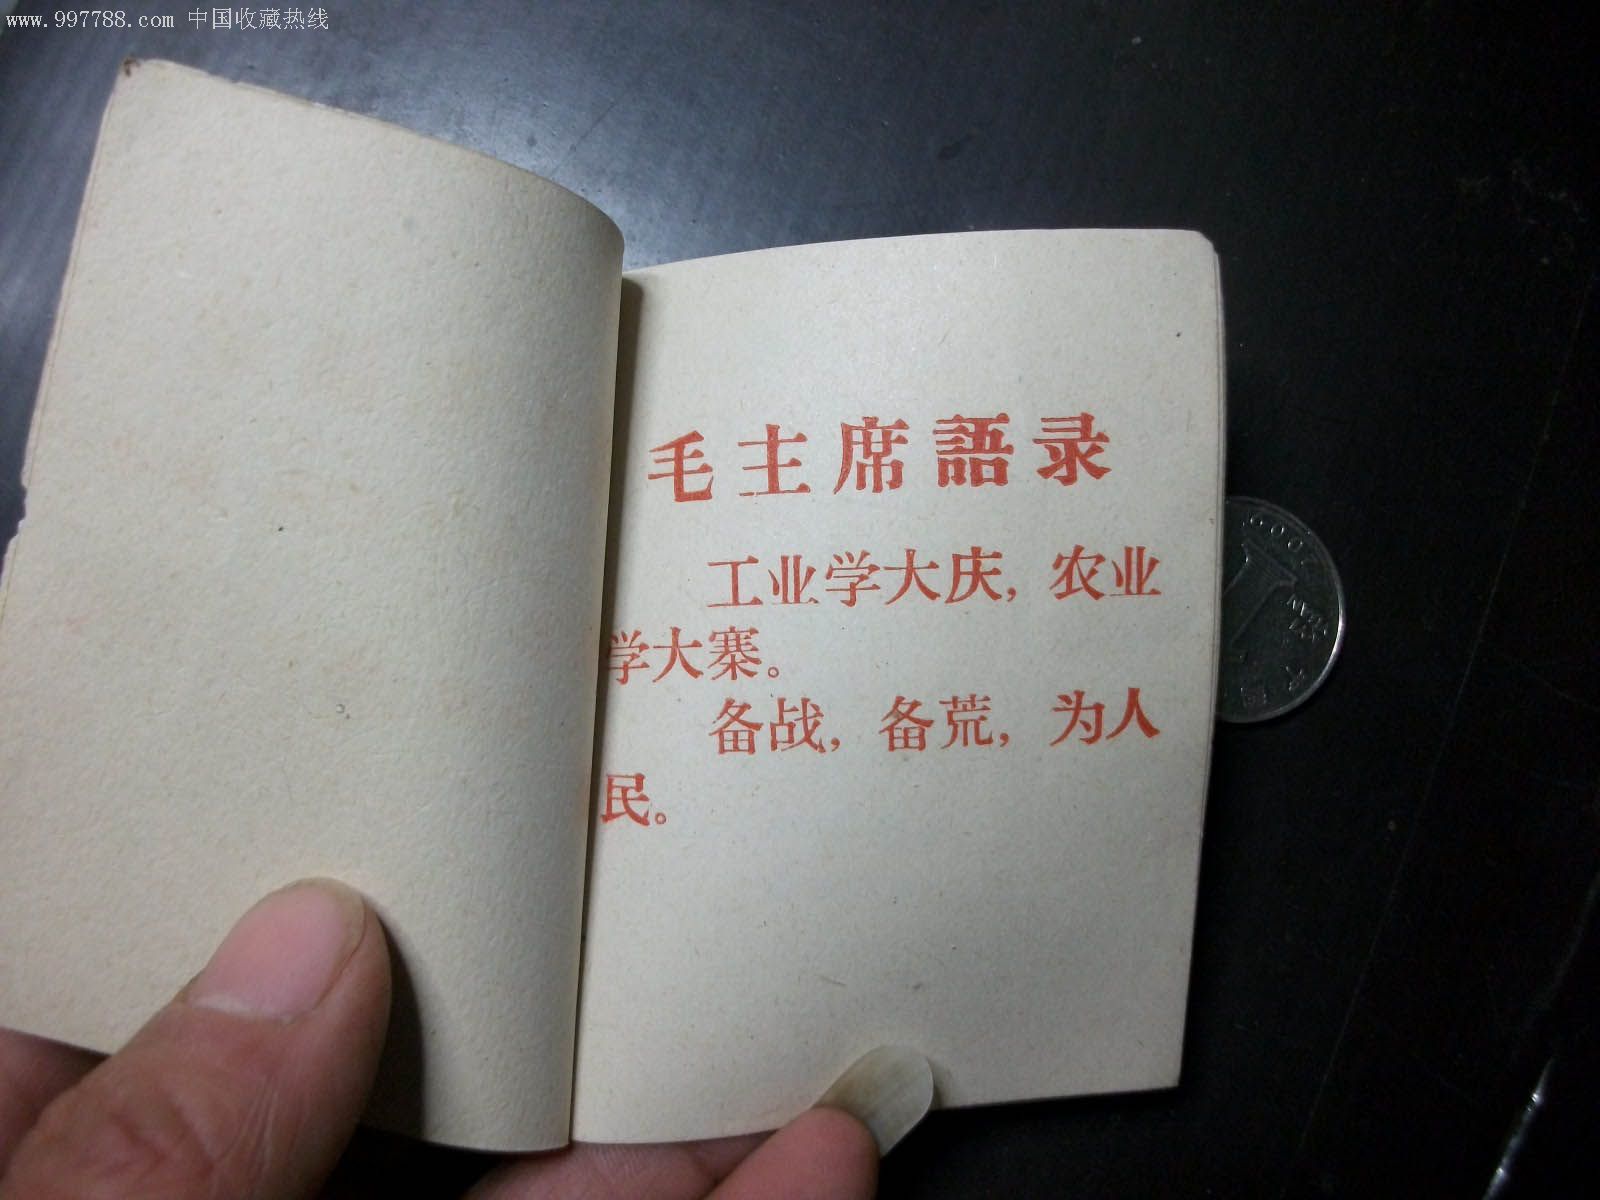 www.997788.com 中国收藏热线
毛主席語录
工业学大庆，农业
学大寨。
备战，备荒，为人
民。